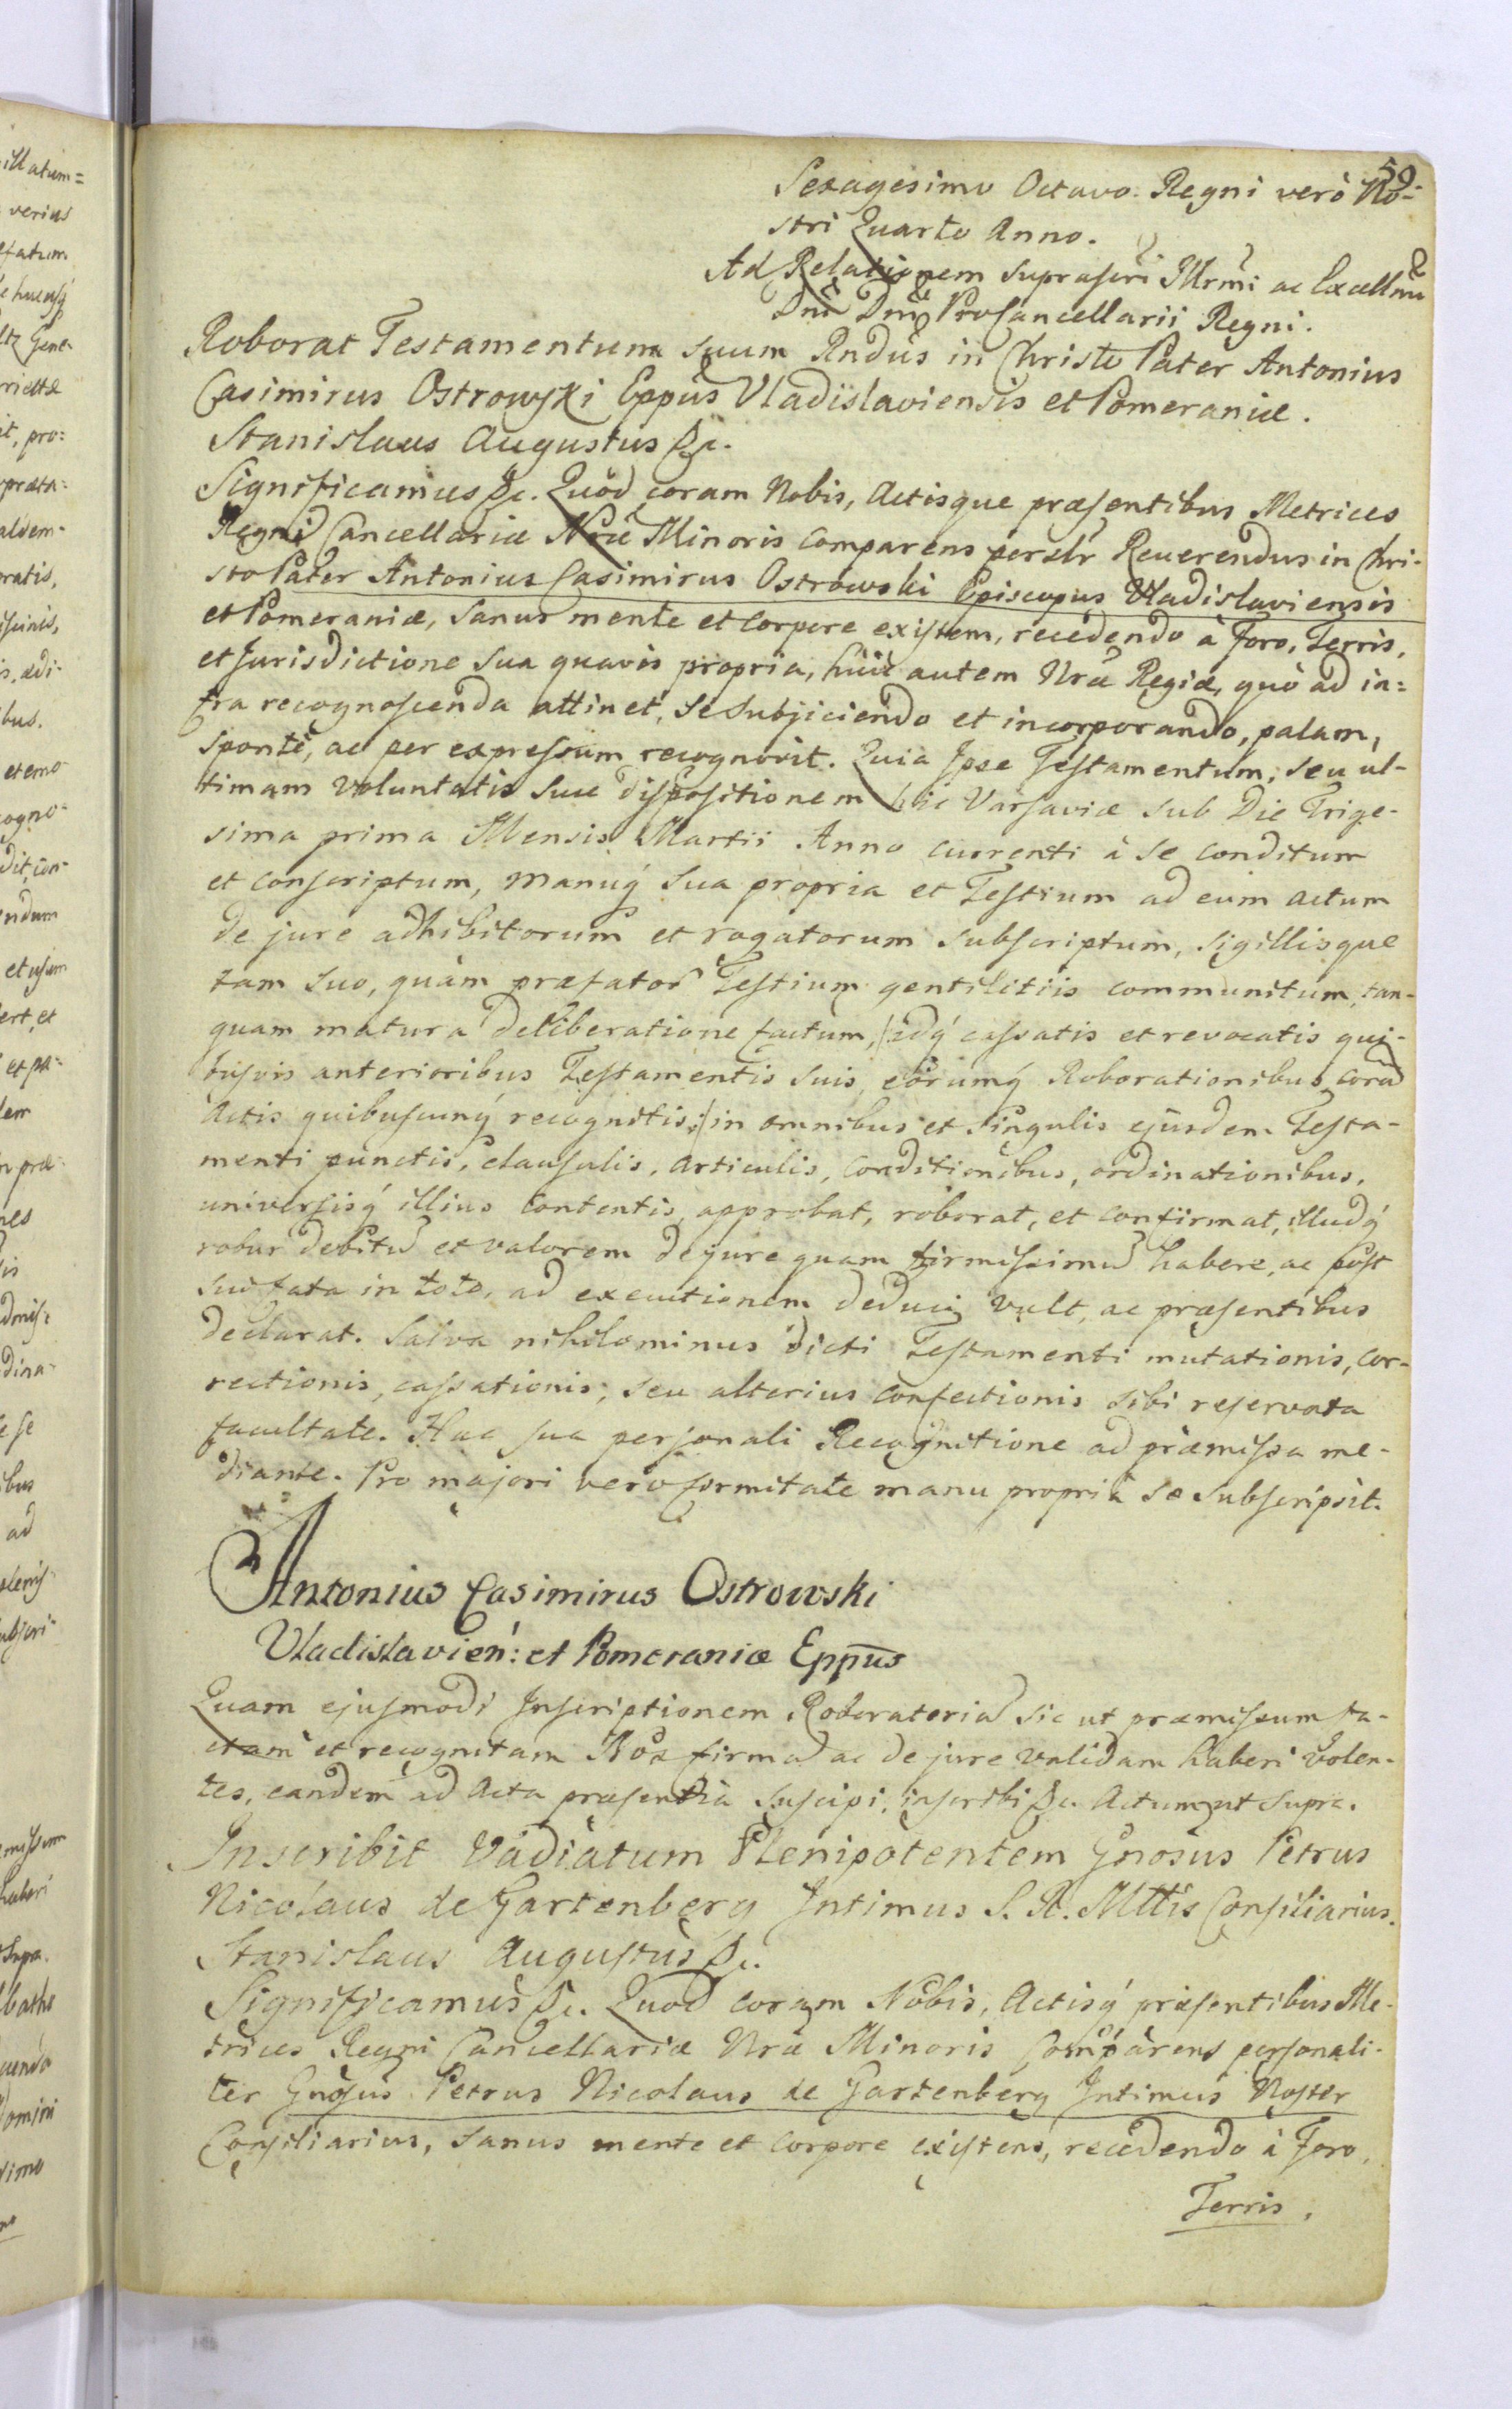 59.
Sexagesimo Octavo. Regni verò No-
stri Quarto Anno.
Ad Relationem suprascri Illrmi ac Excellmi
Dni Dni ProCancellarii Regni.
Roborat Testamentum suum Rndus in Christo Pater Antonius
Casimirus Ostrowski Eppus Vladislaviensis et Pomeraniæ.
Stanislaus Augustus &c.
Significamus &c. Quod coram Nobis, Actisque præsentibus Metrices
Regni Cancellariæ Nræ Minoris comparens perslr Reverendus in Chri-
sto Pater Antonius Casimirus Ostrowski Episcopus Vladislaviensis
et Pomeraniæ, sanus mente et corpore existem, recedendo à Foro, Terris,
et Jurisdictione sua quavis propria, huic autem Nræ Regiæ, quò ad in=
fra recognoscenda attinet, se subjiciendo et incorporando, palam,
sponte, ac per expressum recognovit. Quia Ipse Testamentum, seu ul-
timam voluntatis suæ dispositionem hic Varsaviæ sub Die Trige-
sima prima Mensis Martii Anno currenti à se conditum
et conscriptum, manuq́ sua propria et Testium ad eum actum
de jure adhibitorum et rogatorum subscriptum, sigillisque
tam suo, quàm præfator Testium gentilitiis communitum, tan-
quam matura deliberatione factum, /:idq́ cassatis et revocatis qui-
busvis anterioribus Testamentis suis, eorumq́ Roborationibus cora
Actis quibuscunq́ recognitis:/ in omnibus et singulis ejusdem Testa-
menti punctis, clausulis, articulis, conditionibus, ordinationibus,
universisq́ illius contentis, approbat, roborat, et confirmat, illudq́
robur debitu et valorem de jure quam firmissimu habere, ac post
sua fata in toto, ad executionem deduci vult, ac præsentibus
declarat. Salva nihilominus dicti Testamenti mutationis, cor-
rectionis, cassationis, seu alterius confectionis sibi reservata
facultate. Hac sua personali Recognitione ad præmissa me-
diante. Pro majori vero firmitate manu propriâ se subscripsit.
Antonius Casimirus Ostrowski
Vladislavień: et Pomeraniæ Eppus
Quam ejusmodi Inscriptionem Roboratoria sic ut præmissum fa-
ctam et recognitam Nos firma ac de jure validam haberi volen-
tes, eandem ad Acta præsentia suscipi, inscribi &c. Actum ut supra.
Inscribit Vadiatum Plenipotentem Gnosus Petrus
Nicolaus de Gartenberg Intimus S. R. Mttis Consiliarius.
Stanislaus Augustus &c.
Significamus &c. Quod coram Nobis, Actisq́ præsentibus Me-
trices Regni Cancellariæ Nræ Minoris Comparens personali-
ter Gnosus Petrus Nicolaus de Gartenberg Intimus Noster
Consiliarius, sanus mente et corpore existens, recedendo à Foro,
Terris,